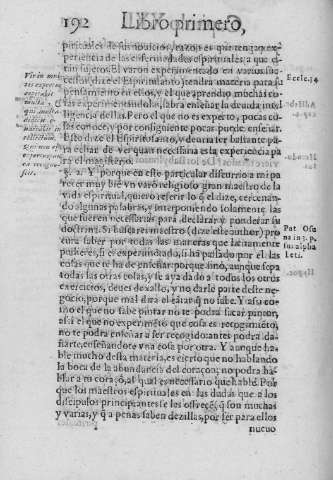 192 Libro primero,
pirituales de sus novicios, razon es que tengan ex-
periencia de las enfermedades espirituales, a que es-
tan sujetos. El varon experimentado en varios suc-
cessos, dize el Espiritusanto, tendra materia para su
pensamiento en ellos, y el que aprendio muchas co-
sas experimentandolas, sabra enseñar la devida inte-
ligencia dellas. Pero el que no es experto, pocas co-
sas conoce, y por consiguiente pocas puede enseñar.
Esto dize el Espiritusanto, y devria ser bastante pa-
ra echar de ver quan necessaria es la experiencia pa
ra el magisterio.
§. 2. Y porque en este particular discurrio a mi pa
recer muy biē vn varō religioso gran maestro de la
vida espiritual, quiero referir lo q̄ el dize, cercenan-
do algunas palabras, y interponiendo solamente las
que fueren necessarias para declarar y ponderar su
dotrina. Si busca se maestro (dize este author) pro
cura saber por todas las maneras que licitamente
pudieres, si es experimentado, si ha passado por el las
cosas que te ha de enseñar: porque sino, aunque sepa
todas las otras cosas, y se aya dado a todos los otros
exercicios, deves dexallo, y no darle parte deste ne-
gocio, porque mal dira el q̄ no sabe. Y assi co
mo el que no sabe pintar no te podra sacar pintor,
assi el que no experimētō que cosa es recogimiēto,
no te podra enseñar a ser recogido: antes podra da-
ñarte, enseñandote vna cosa por otra. Y aunque ha-
ble mucho desta materia, es cierto que no hablando
la boca de la abundancia del coraçon, no podra ha-
blar a tu coraçō, al qual es necessario que hable. Por
que los maestros espirituales en las dudas que a los
discipulos principiantes se les ofrecē, q̄ son muchas
y varias, y q̄ a penas saben dezillas, por ser para ellos
nuevo
Eccle. 34
Pat Osu
na in 3. p.
sui alpha
beti.